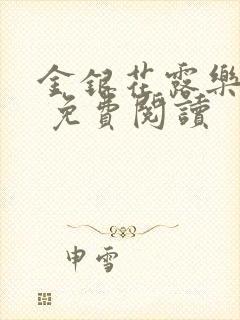 金銀花露樂
免費閱讀
申雪